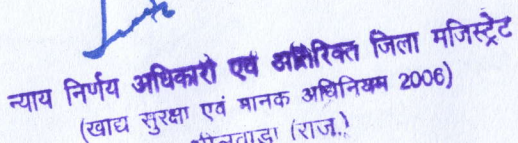 न्याय निर्णय अधिकारी एवं अतिरिक्त जिला मजिस्ट्रेट
(खाद्य सुरक्षा एवं मानक अधिनियम 2006)
भीलवाडा (राज.)